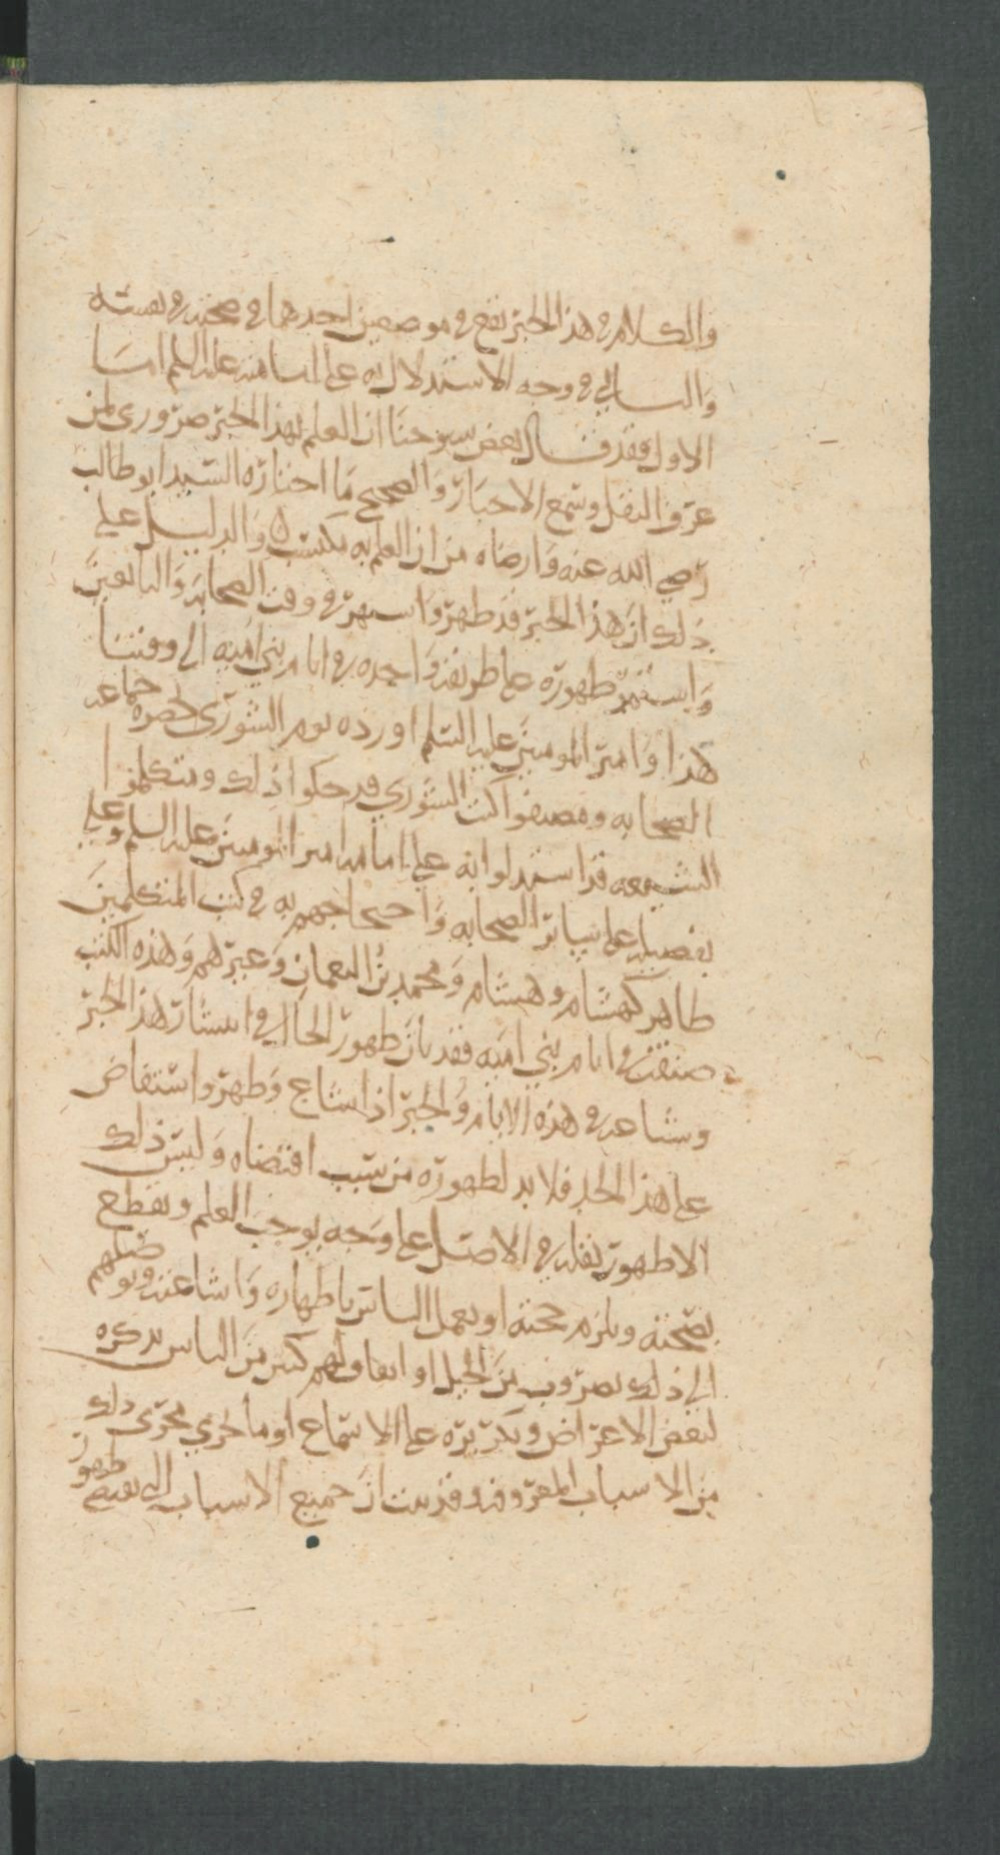 والكلام في هذا الخبر يقع في موضعين احدهما في صحته في نفسه
والثاني في وجه الاستدلال به على امامته عليه السلم اما
الاول فقد قال بعض شيوخنا ان العلم بهذا الخبر ضروري لمن
عرف النقل وسمع الاخبار والصحيح ما اختاره السيد ابو طالب
رضي الله عنه وارضاه من ان العلم به مكتسب والدليل على
ذلك ان هذا الخبر قد ظهر واشتهر في وقت الصحابه والتابعين
واستمر ظهوره على طريقه واحده في ايام بني اميه الى وقتنا
هذا وامير المومنين عليه السلم اورده يوم الشورى بحضره جماعه
الصحابه ومصنفوا كتب الشورى قد حكوا ذلك ومتكلموا
الشيعه قد استدلوا به على امامه امير المومنين عليه السلم وعلى
تفضيله على سائر الصحابه واحتجاجهم به في كتب المتكلمين
ظاهر كهشام وهشام ومحمد بن النعمان وغيرهم وهذه الكتب
صنفت في ايام بني اميه فقد بان ظهور الحال في انتشار هذا الخبر
وشاعه في هذه الايام والخبر اذا شاع وظهر واستفاض
على هذا الحد فلا بد لظهوره من سبب اقتضاه وليس ذلك
الا ظهور نقله في الاصل على وجه يوجب العلم ويقطع
بصحته ويلزم حجته او بعمل الناس باظهاره واشاعته وتوصلهم
الى ذلك بضروب من الحيل او اتفاق لهم كثير من الناس بذكره
لبعض الاعراض وتكريره على الاسماع او ما جرى مجرى ذلك
من الاسباب المعروفه وقد بينت ان جميع الاسباب التي تقتضي ظهور